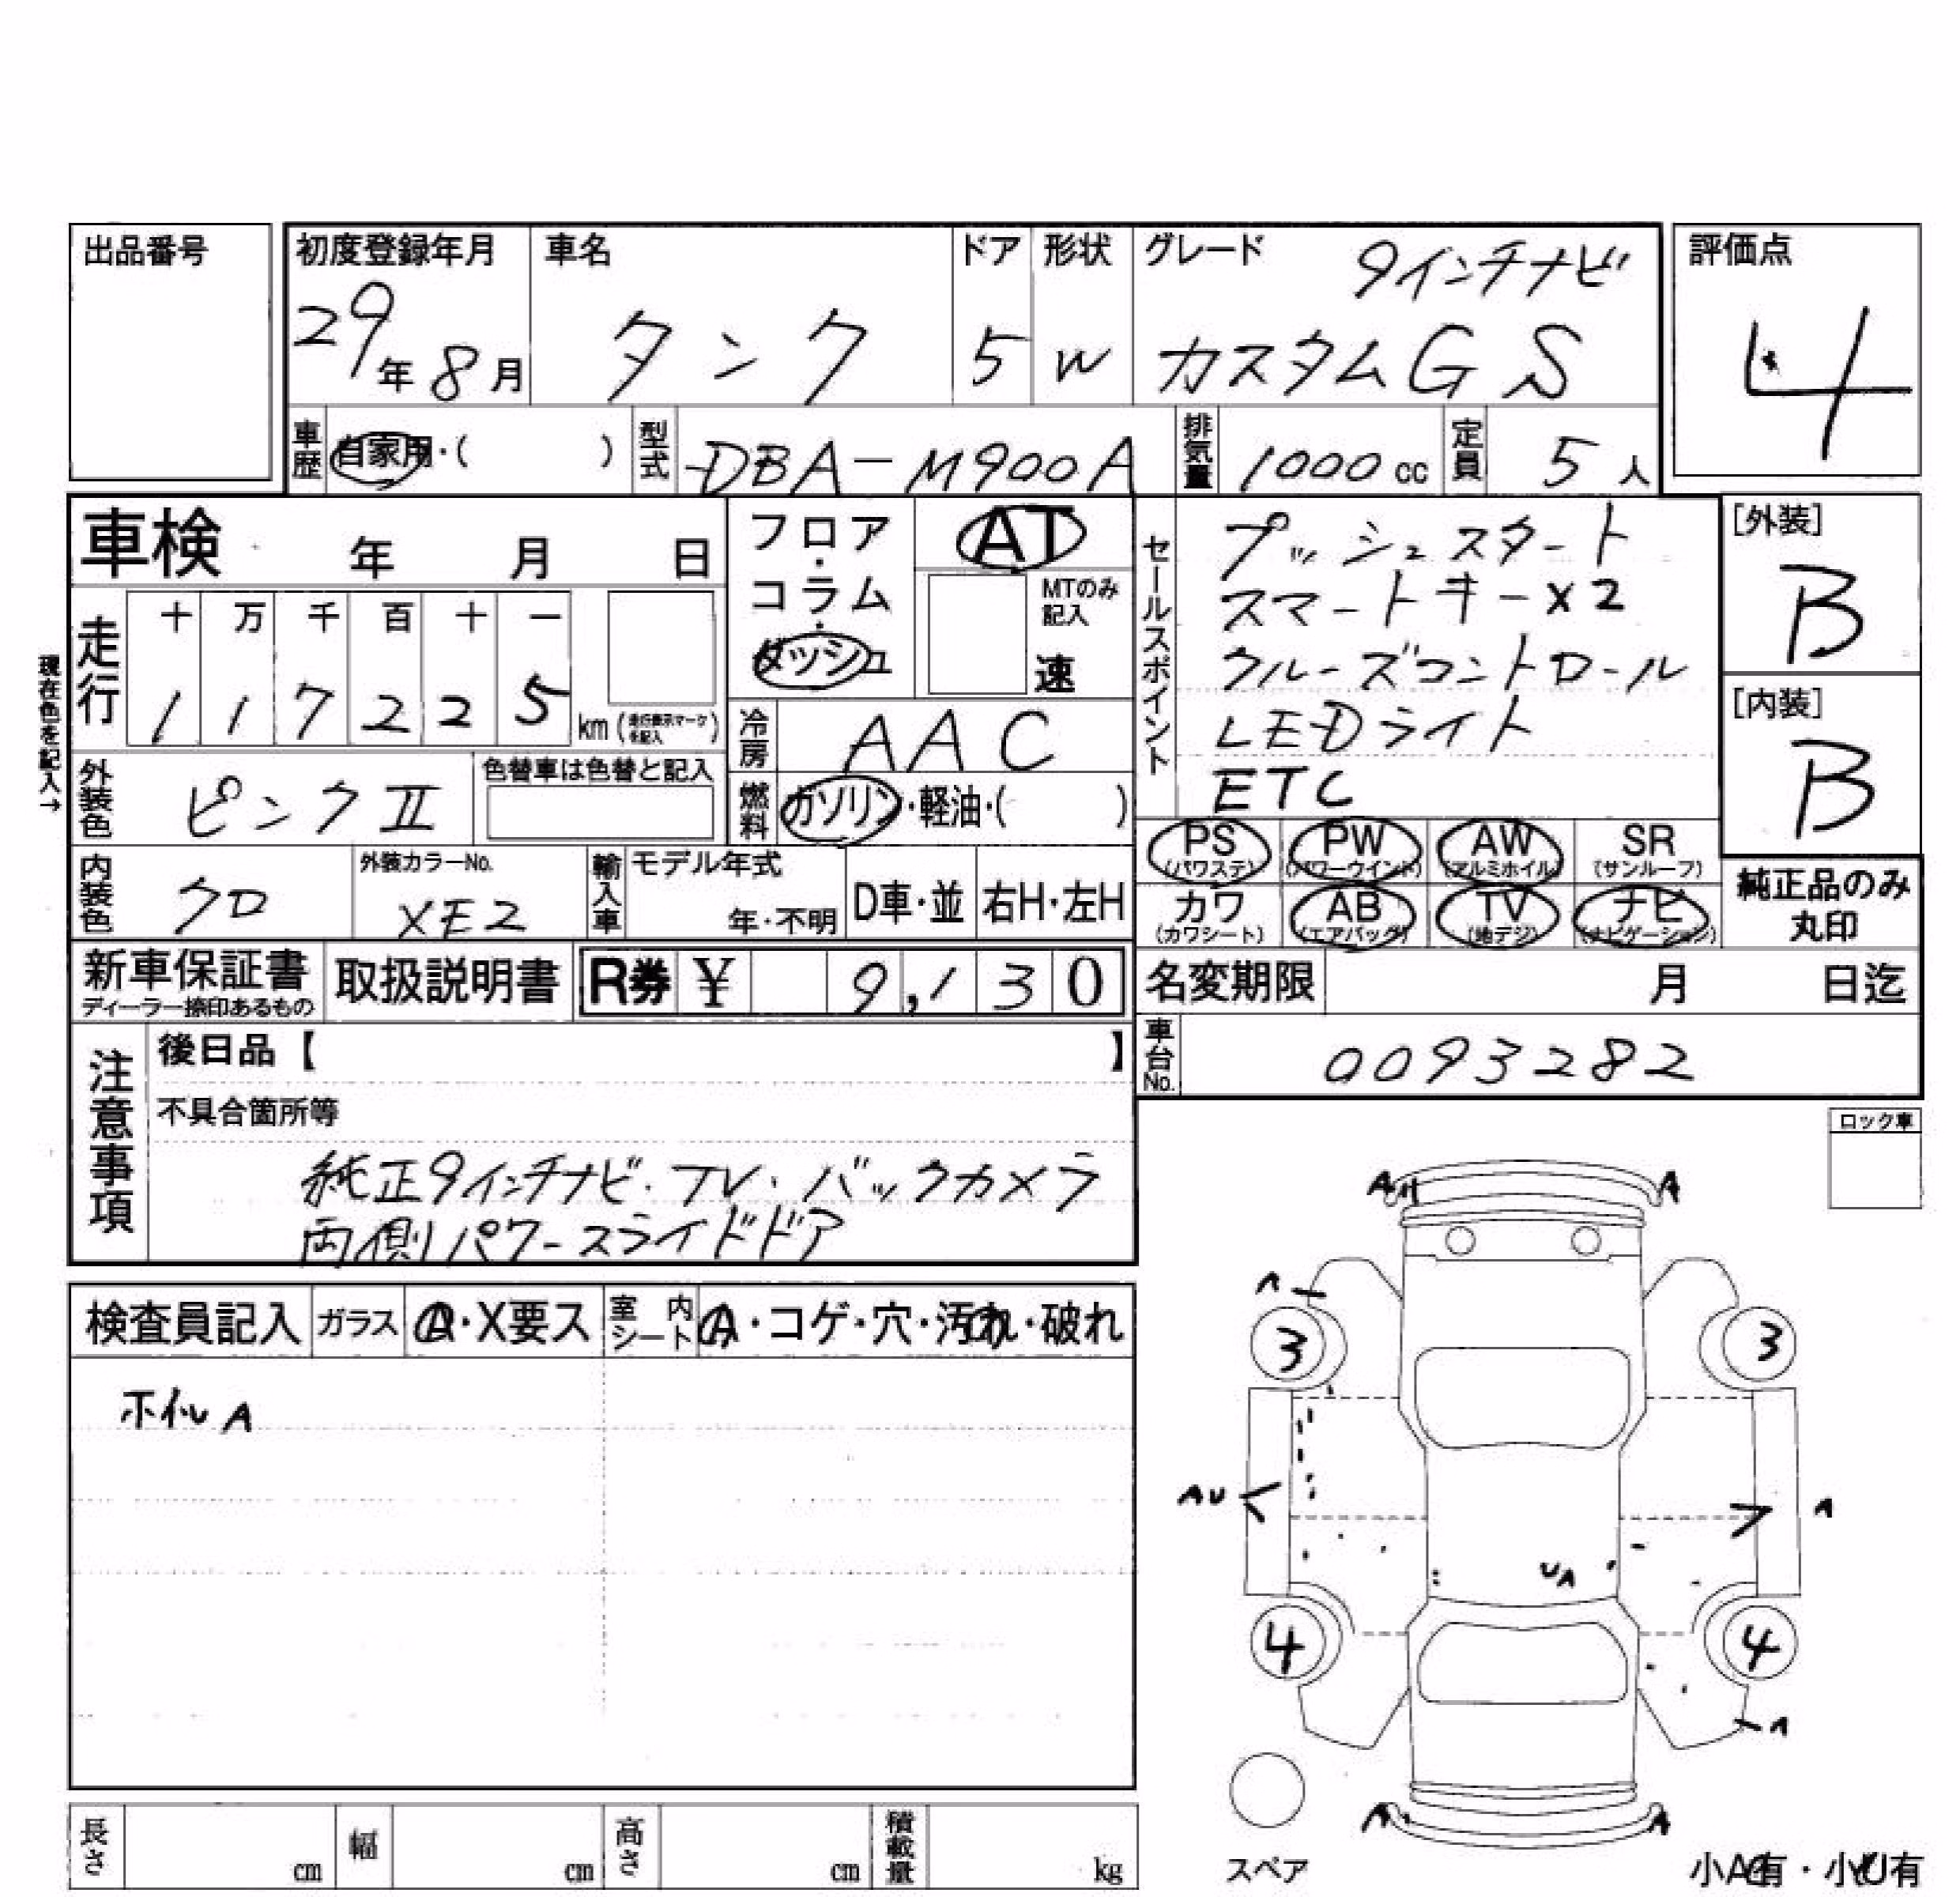 出品番号
初度登録年月 29年8月
車名 タンク
ドア 5
形状 W
グレード 9インチナビ
カスタムGS
評価点 4
車歴 自家用・( )
型式 DBA-M900A
排気量 1000cc
定員 5人
車検 年 月 日
フロア・コラム・ダッシュ
AT
MTのみ記入
速
セールスポイント
プッシュスタート
スマートキー×2
クルーズコントロール
LEDライト
ETC
[外装] B
[内装] B
現在色を記入→
走行
十 万 千 百 十 一
1 1 7 2 2 5 km (走行表示マークを記入)
冷房 AAC
燃料 ガソリン・軽油・( )
外装色 ピンクⅡ
色替車は色替と記入
PS (パワステ) PW (パワーウインド) AW (アルミホイル) SR (サンルーフ)
カワ (カワシート) AB (エアバッグ) TV (地デジ) ナビ (ナビゲーション)
純正品のみ
丸印
内装色 クロ
外装カラーNo. XE2
輸入車
モデル年式 年・不明
D車・並
右H・左H
新車保証書
ディーラー捺印あるもの
取扱説明書
R券 ¥ 9,130
名変期限 月 日迄
車台No. 0093282
注意事項
後日品【 】
不具合箇所等
純正9インチナビ・TV・バックカメラ
両側パワースライドドア
ロック車
検査員記入
ガラス A・X要ス
室内シート A・コゲ・穴・汚れ・破れ
ホイルA
A A
A
3 3
AU A
UA
4 4
A
A A
スペア
小A有・小U有
長さ cm
幅 cm
高さ cm
積載量 kg